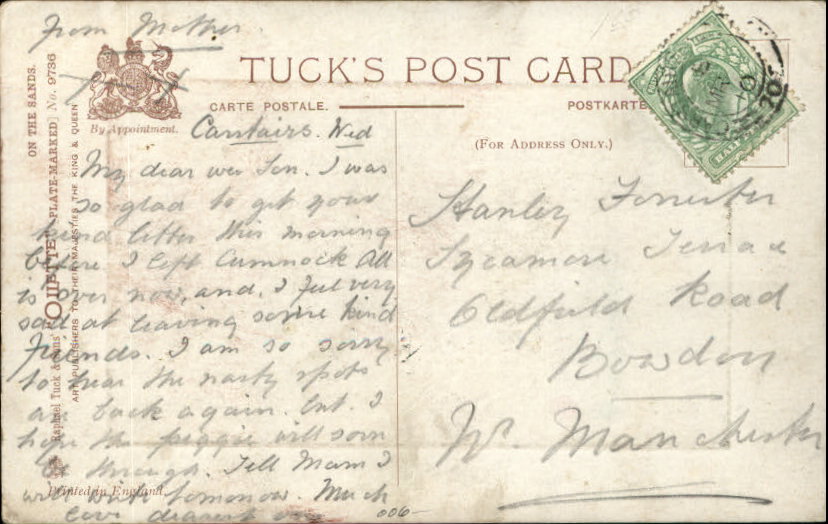 From Mother.
TUCK'S POST CARD
CARTE POSTALE.
POSTKARTE
By Appointment.
(FOR ADDRESS ONLY.)
Carstairs. Wed
My dear wee Son. I was
so glad to get your
kind letter this morning
before I left Cumnock All
is over now, and, I feel very
sad at leaving some kind
Friends. I am so sorry
to hear the nasty spots
are back again. but I
hope the piggie will soon
be through. Tell Mam I
will write tomorrow. Much
love dearest
Stanley Forrester
Sycamore Terrace
Oldfield Road
Bowdon
Nr. Manchester
ON THE SANDS.
Raphael Tuck & Sons' "OILETTE" [PLATE-MARKED] No. 9736
ART PUBLISHERS TO THEIR MAJESTIES THE KING & QUEEN
Printed in England.
006-